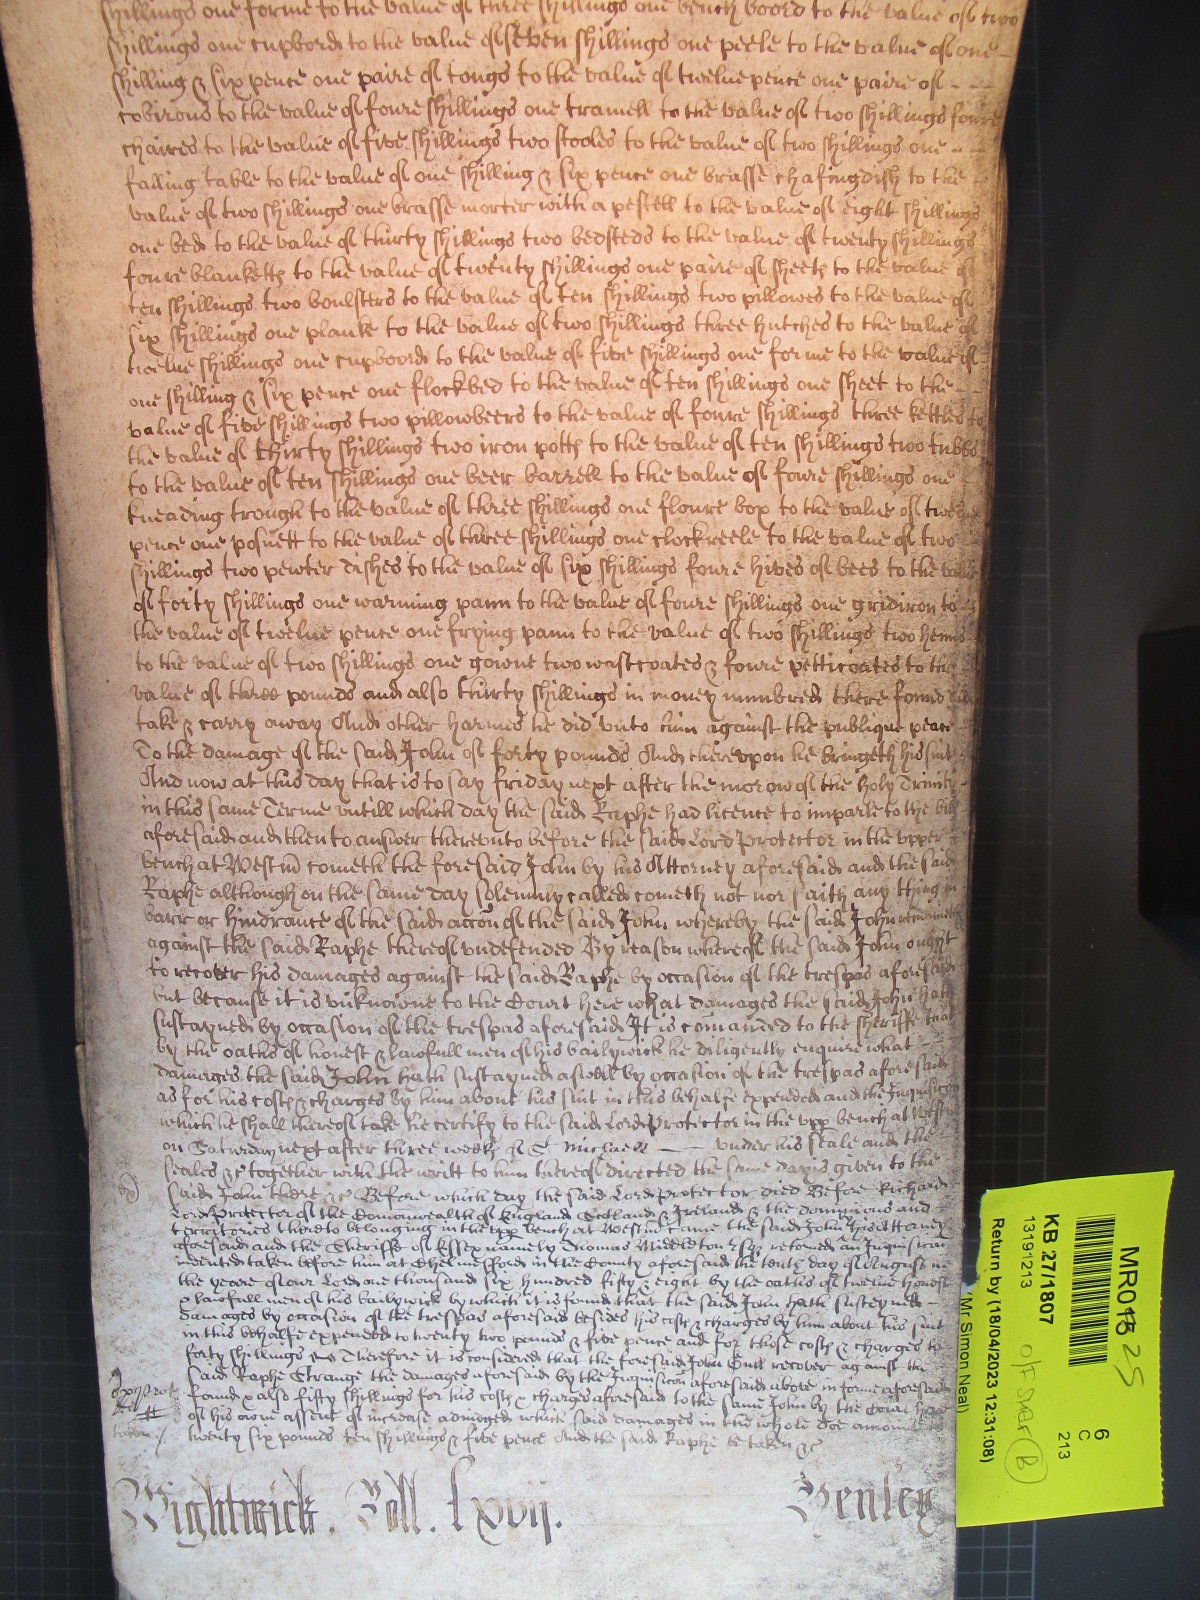 shillings one forme to the value of three shillings one bench boord to the value of two
shillings one cupbord to the value of seven shillings one peele to the value of one
shilling & six pence one paire of tongs to the value of twelue pence one paire of
cobirons to the value of foure shillings one tramell to the value of two shillings foure
chaires to the value of five shillings two stooles to the value of two shillings one
falling table to the value of one shilling & six pence one brasse chafingdish to the
value of two shillings one brasse morter with a pestell to the value of eight shillings
one bed to the value of thirty shillings two bedsteds to the value of twenty shillings
foure blanketts to the value of twenty shillings one paire of sheets to the value of
ten shillings two boulsters to the value of ten shillings two pillowes to the value of
six shillings one planke to the value of two shillings three hutches to the value of
twelue shillings one cupboord to the value of five shillings one forme to the value of
one shilling & six pence one flockbed to the value of ten shillings one sheet to the
value of five shillings two pillowbeers to the value of foure shillings three kettles to
the value of thirty shillings two iron potts to the value of ten shillings two tubbs
to the value of ten shillings one beer barrell to the value of foure shillings one
kneading trough to the value of three shillings one floure box to the value of twelue
pence one posnett to the value of three shillings one clockreele to the value of two
shillings two pewter dishes to the value of six shillings foure hives of bees to the value
of forty shillings one warming pann to the value of foure shillings one gridiron to
the value of twelue pence one frying pann to the value of two shillings two henns
to the value of two shillings one gowne two wastcoates & foure petticoates to the
value of three pounds and also thirty shillings in money numbred there found did
take & carry away And other harmes he did vnto him against the publique peace
To the damage of the said John of forty pounds And therevpon he bringeth his suit
And now at this day that is to say friday next after the morow of the holy Trinity
in this same Terme vntill which day the said Raphe had licence to imparle to the bill
aforesaid and then to answer therevnto before the said Lord Protector in the vpper
bench at Westm cometh the foresaid John by his Attorney aforesaid and the said
Raphe although on the same day solemnly called cometh not nor saith any thing in
barr or hindrance of the said accon of the said John whereby the said John remaineth
against the said Raphe thereof vndefended By reason whereof the said John ought
to recover his damages against the said Raphe by occasion of the trespas aforesaid
but because it is vnknowne to the Court here what damages the said John hath
sustayned by occasion of the trespas aforesaid It is comanded to the sheriffe that
by the oaths of honest & lawfull men of his bailywick he diligently enquire what
damages the said John hath sustayned aswell by occasion of the trespas aforesaid
as for his costs & charges by him about his suit in this behalfe expended and the Inquisicon
which he shall thereof take he certify to the said Lord Protector in the vpp bench at Westm
on Saturday next after three weeks of St Michaell vnder his seale and the
seales &c together with the writt to him thereof directed the same day is given to the
said John there &c Before which day the said Lord Protector died Before Richard
Lord Protector of the Comonwealth of England Scotland & Ireland & the dominions and
territories thereto belonging in the vpp bench at Westm came the said John by his Attorney
aforesaid and the Sheriffe of Essex namely Thomas Middleton Esqr retorned an Inquisicon
indented taken before him at Chelmesford in the County aforesaid the tenth day of August in
the yeare of our Lord one thousand six hundred fifty & eight by the oaths of twelue honest
& lawfull men of his bailywick by which it is found that the said John hath susteyned
damages by occasion of the trespas aforesaid besides his costs & charges by him about his suit
in this behalfe expended to twenty two pounds & five pence and for those costs & charges to
forty shillings Therefore it is considered that the foresaid John Bull recover against the
said Raphe Strange the damages aforesaid by the Inquisicon aforesaid above in forme aforesaid
found & also fifty shillings for his costs & charges aforesaid to the same John by the Court here
of his owne assent of increase adiudged which said damages in the whole doe amount
twenty six pounds ten shillings & five pence And the said Raphe be taken &c
Wightwick. Roll. lxvij. Henley
MR018 25
6
C
213
KB 27/1807
13191213
Return by (18/04/2023 12:31:08)
(Mr Simon Neal)